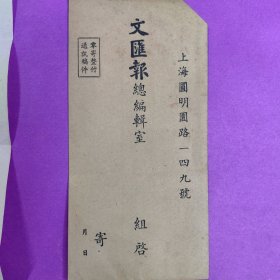 上海圓明園路一四九號
文匯報總編輯室　組啓
寄
月　日
專寄整付
退投稿件